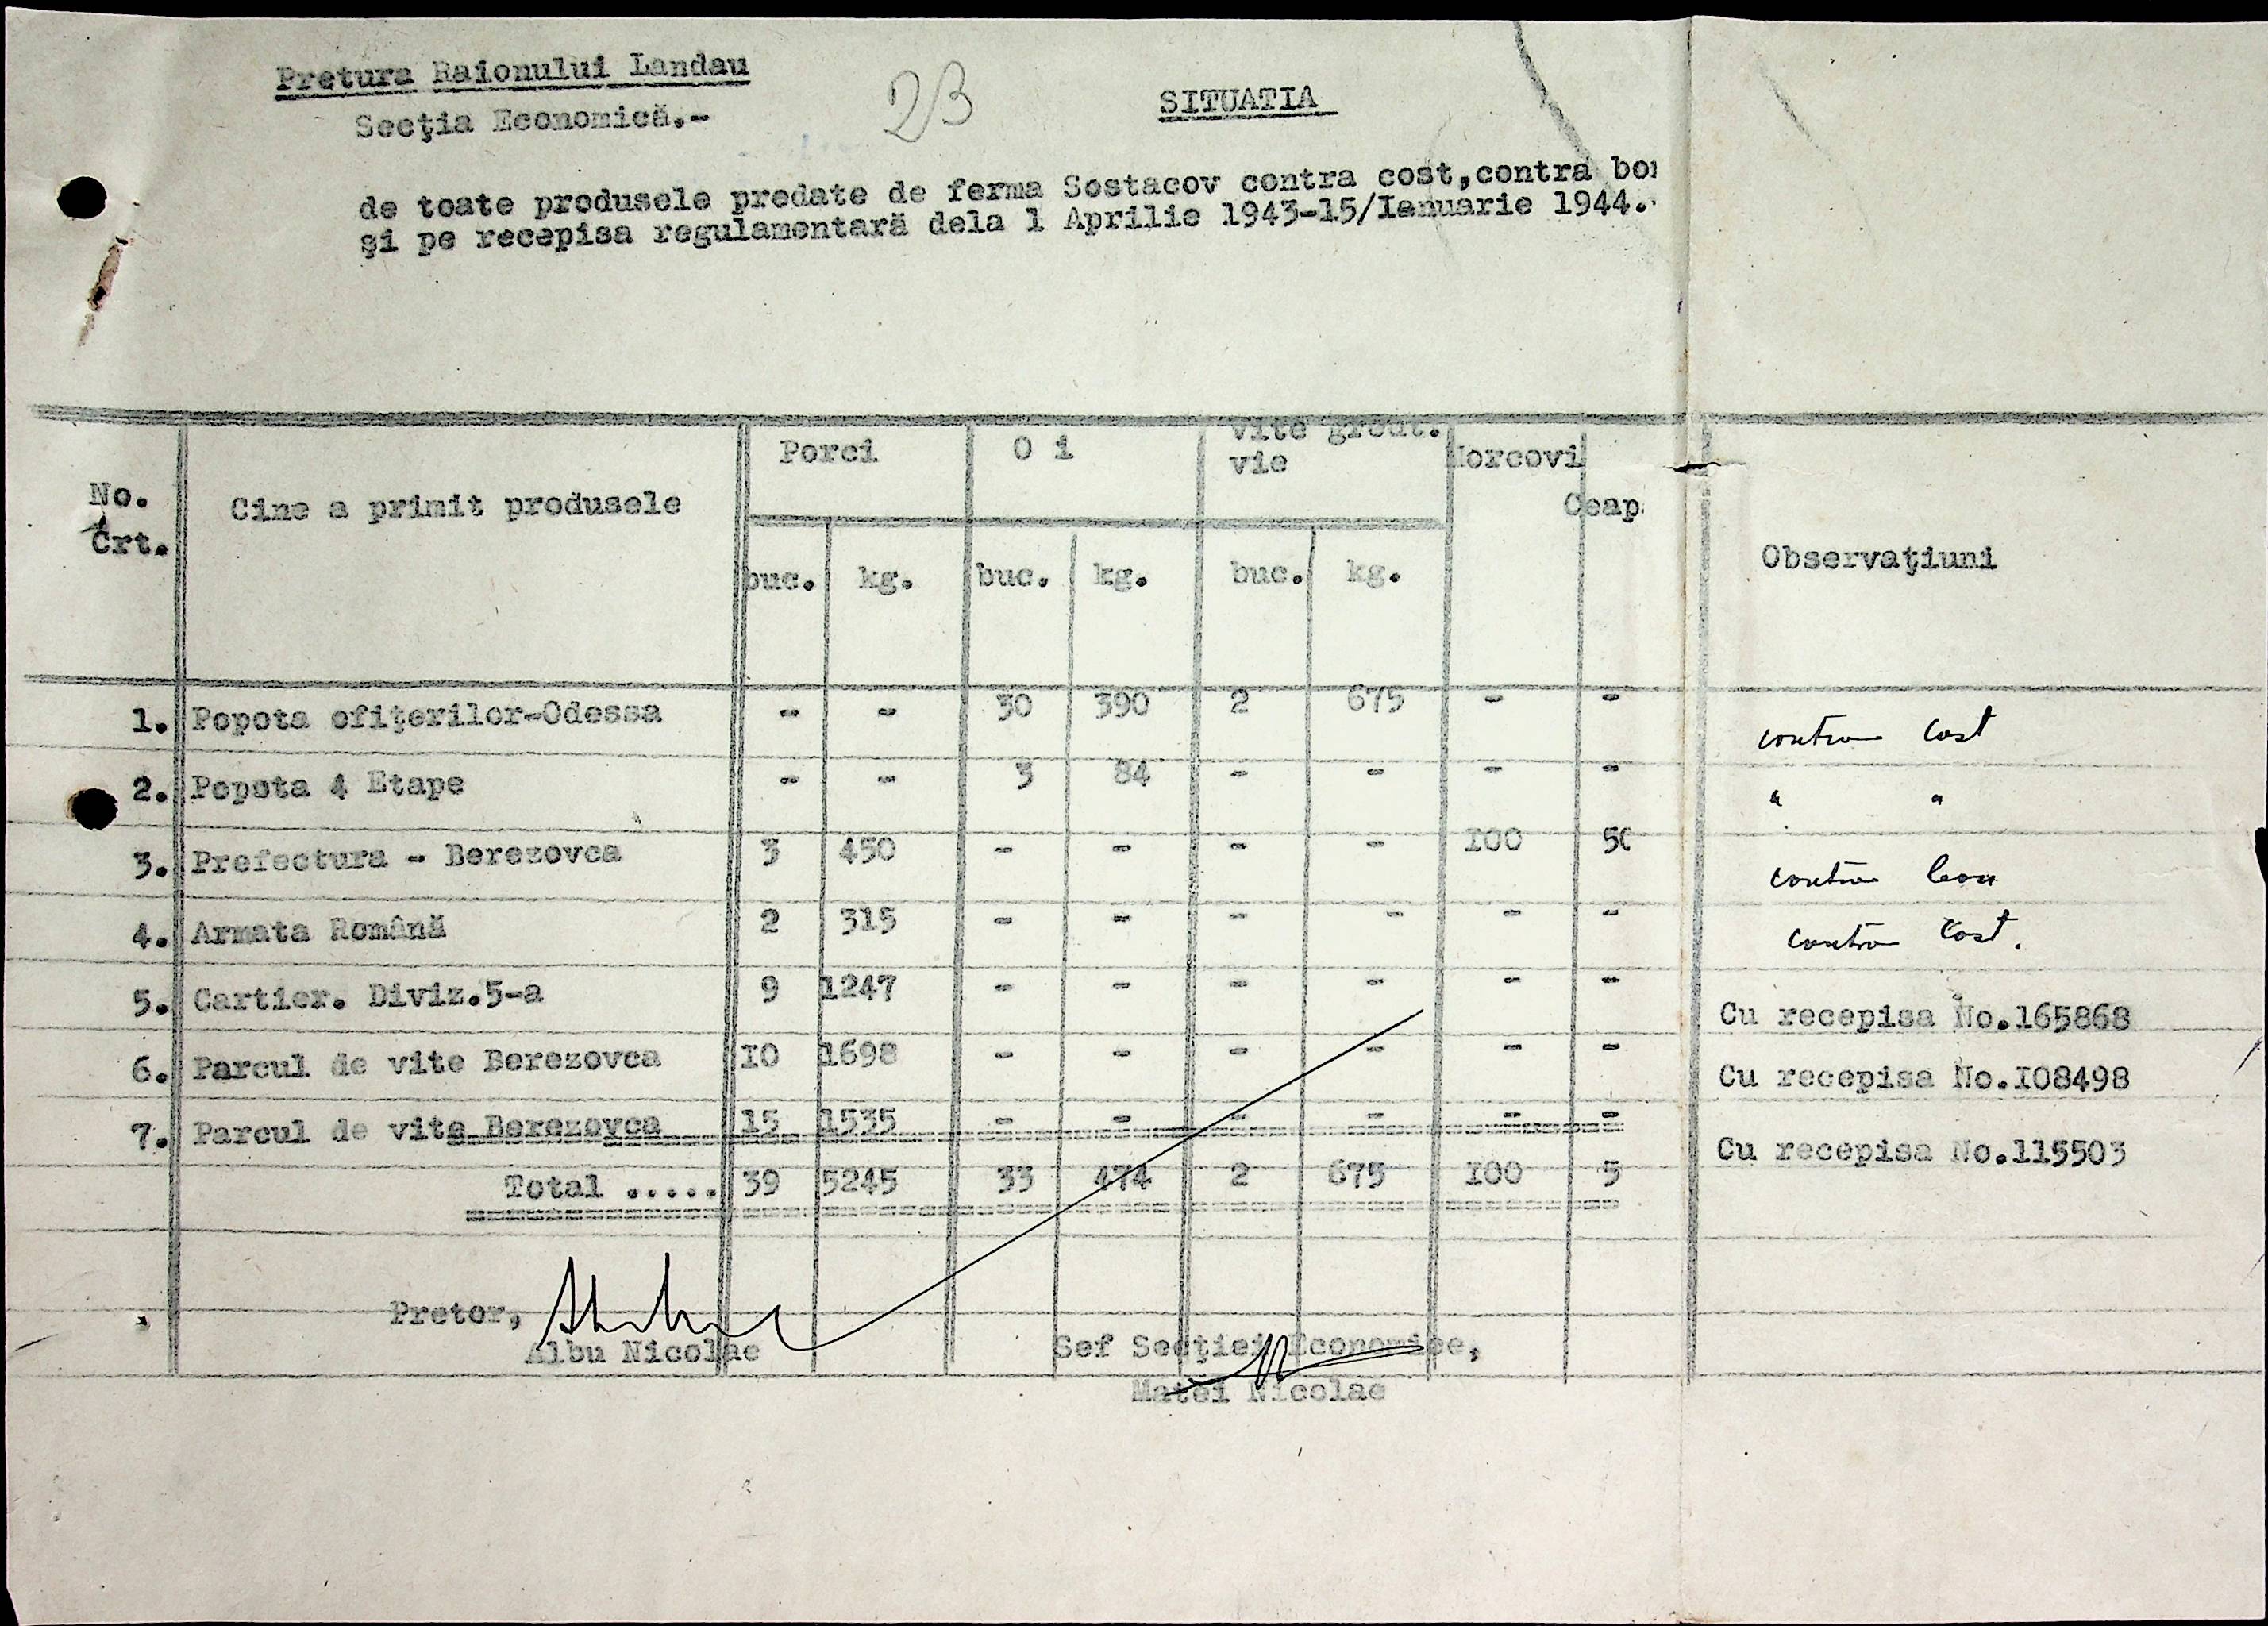 Pretura Raionului Landau
Secţia Economică.-
23
SITUATIA
de toate produsele predate de ferma Sostacov contra cost,contra bo
şi pe recepisa regulamentară dela 1 Aprilie 1943-15/Ianuarie 1944.-
No. Crt. Cine a primit produsele Porci O i vite greut. vie Morcovi Ceap Observaţiuni
buc. kg. buc. kg. buc. kg.
1. Popota ofiţerilor-Odessa - - 30 390 2 675 - - contra cost
2. Popota 4 Etape - - 3 84 - - - - " "
3. Prefectura - Berezovca 3 450 - - - - 100 50 contra bon
4. Armata Română 2 315 - - - - - - contra cost.
5. Cartier. Diviz.5-a 9 1247 - - - - - - Cu recepisa No.165868
6. Parcul de vite Berezovca 10 1698 - - - - - - Cu recepisa No.I08498
7. Parcul de vite Berezovca 15 1535 - - - - - - Cu recepisa No.115503
Total ..... 39 5245 33 474 2 675 100 5
Pretor,
Albu Nicolae
Sef Secţiei Economice,
Matei Nicolae